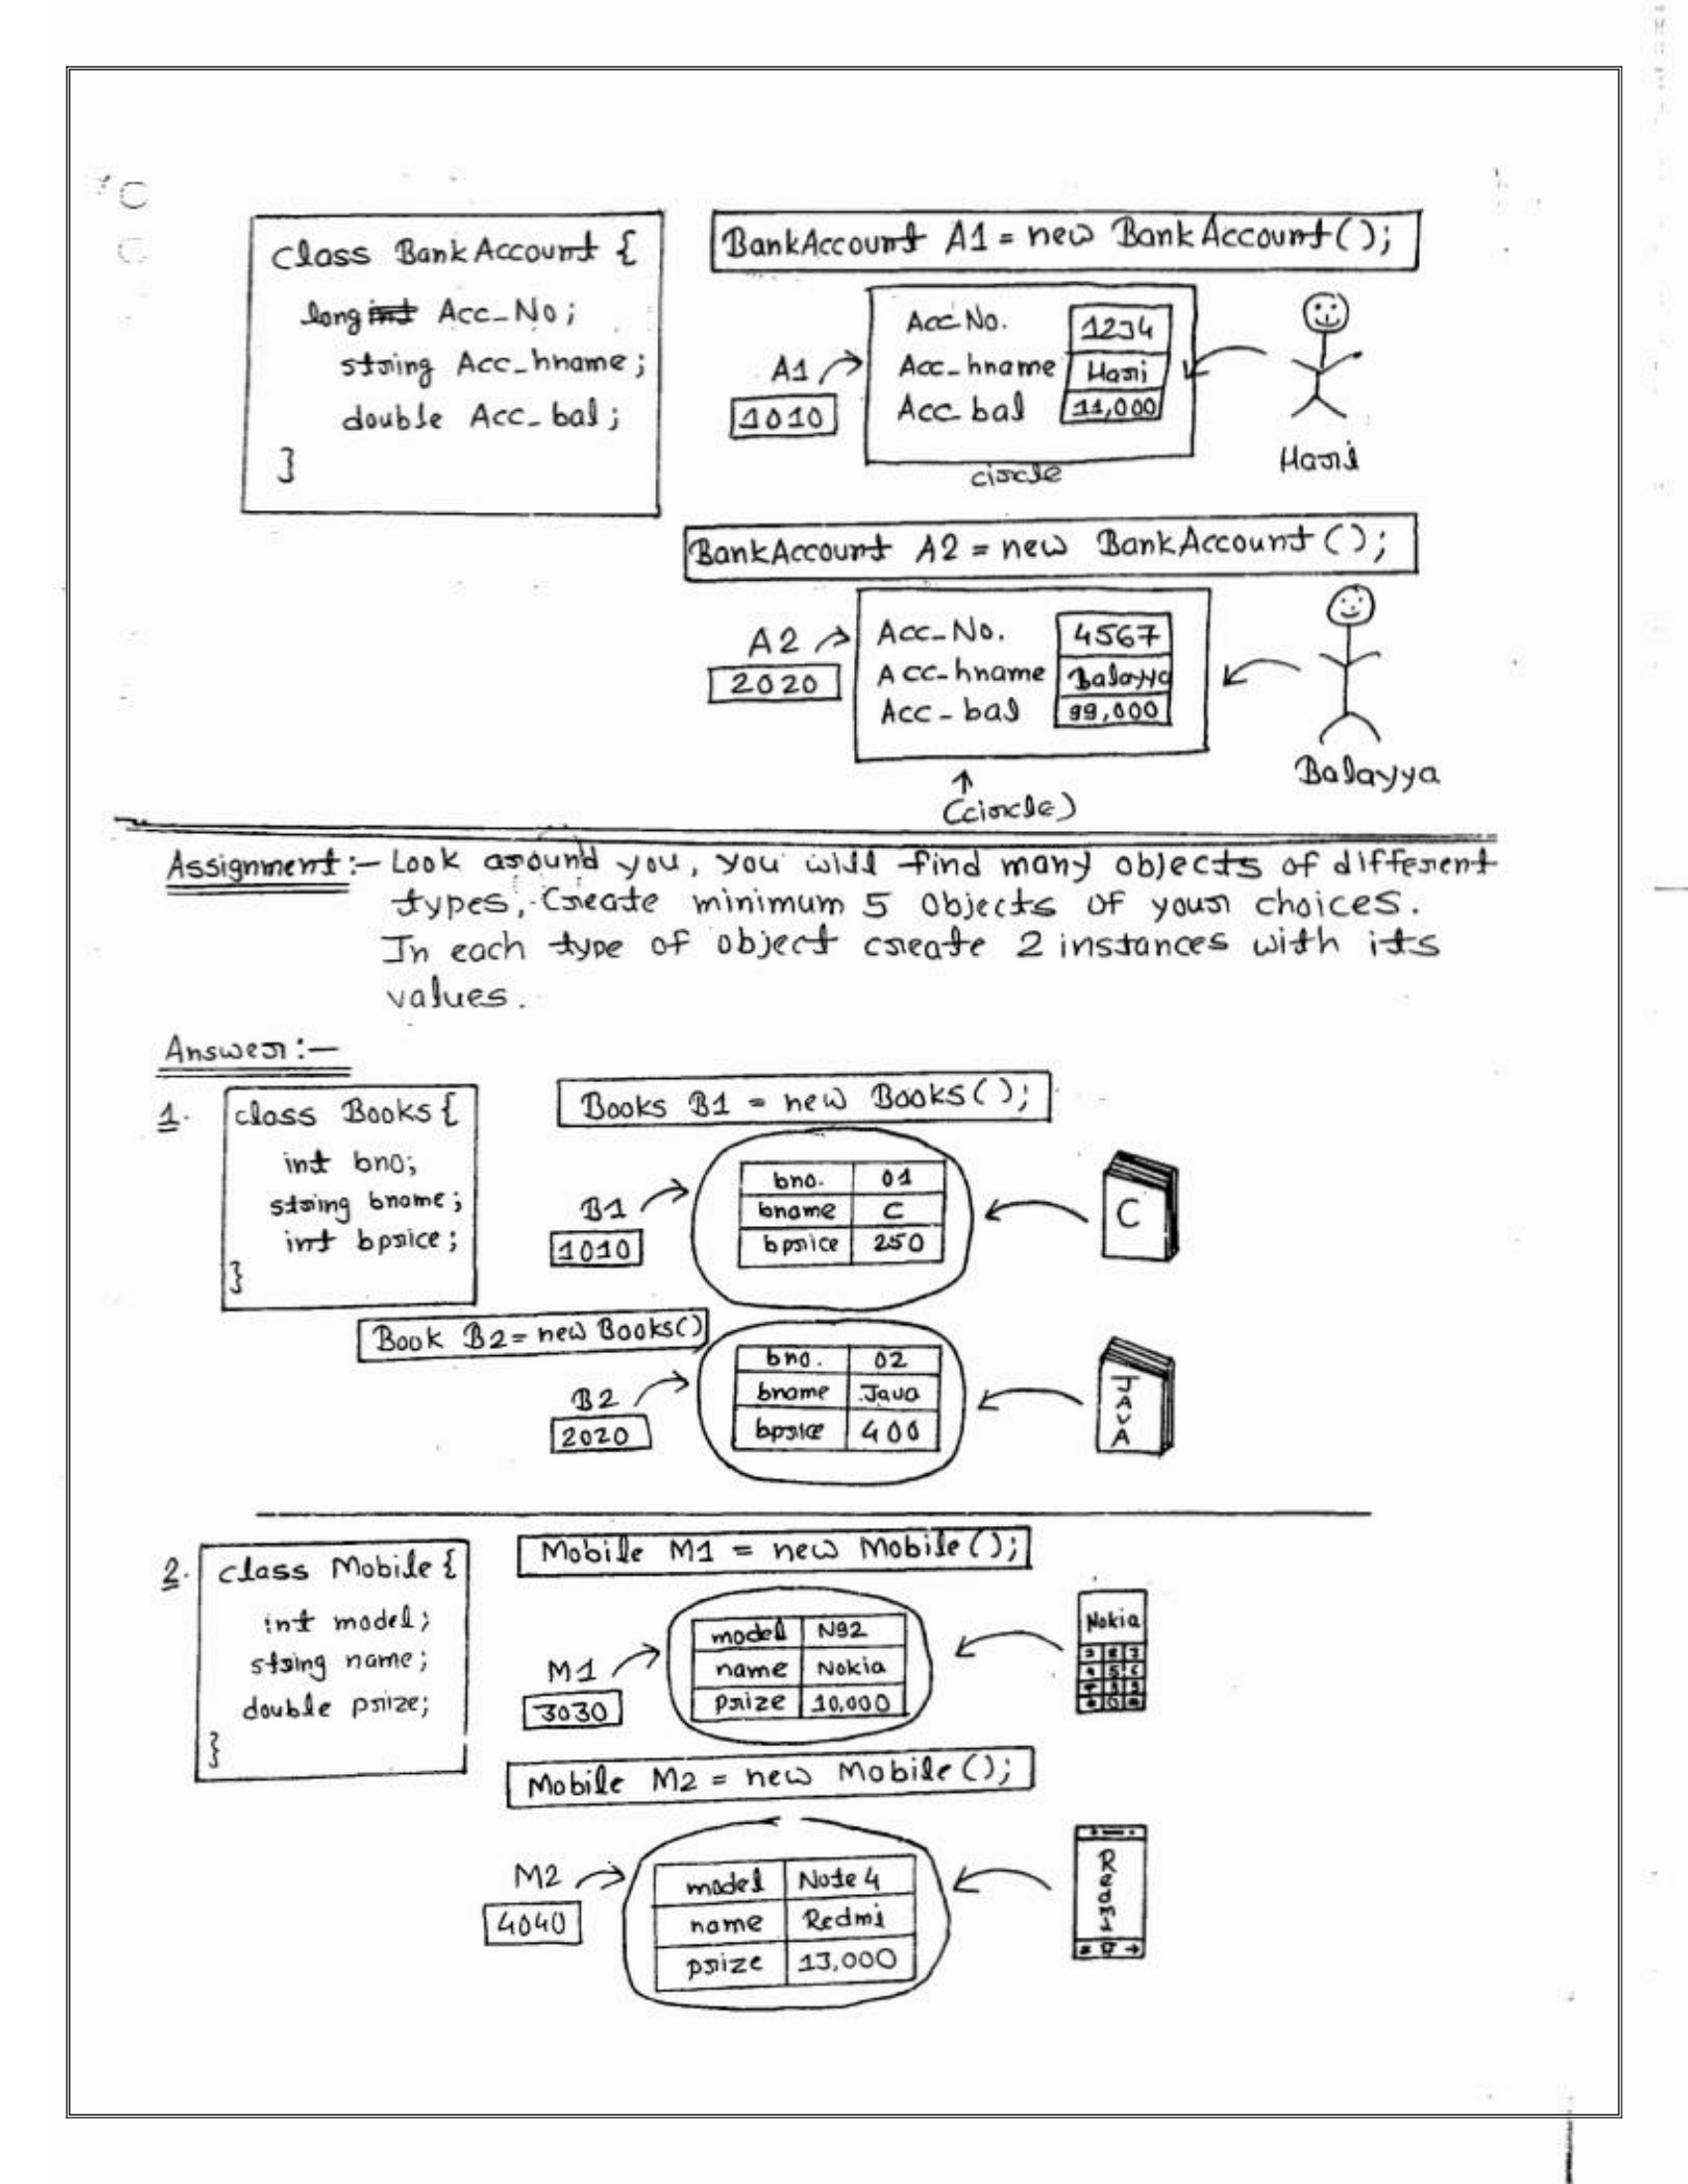 class BankAccount {
long int Acc_No;
string Acc_hname;
double Acc_bal;
}
BankAccount A1 = new BankAccount();
A1
1010
Acc No. 1234
Acc_hname Hari
Acc bal 11,000
circle
Hari
BankAccount A2 = new BankAccount();
A2
2020
Acc_No. 4567
Acc_hname Balayya
Acc_bal 99,000
(circle)
Balayya
Assignment:- Look around you, you will find many objects of different
types, Create minimum 5 objects of your choices.
In each type of object create 2 instances with its
values.
Answer:-
1.
class Books {
int bno;
string bname;
int bprice;
}
Books B1 = new Books();
B1
1010
bno. 01
bname C
bprice 250
C
Book B2 = new Books()
B2
2020
bno. 02
bname Java
bprice 400
JAVA
2.
class Mobile {
int model;
string name;
double prize;
}
Mobile M1 = new Mobile();
M1
3030
model N92
name Nokia
Prize 10,000
Nokia
Mobile M2 = new Mobile();
M2
4040
model Note 4
name Redmi
prize 13,000
Redmi